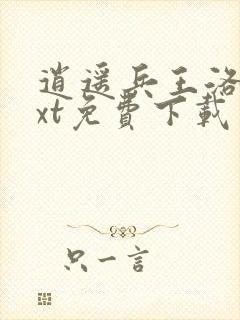 逍遥兵王洛
xt免費下載
只一言